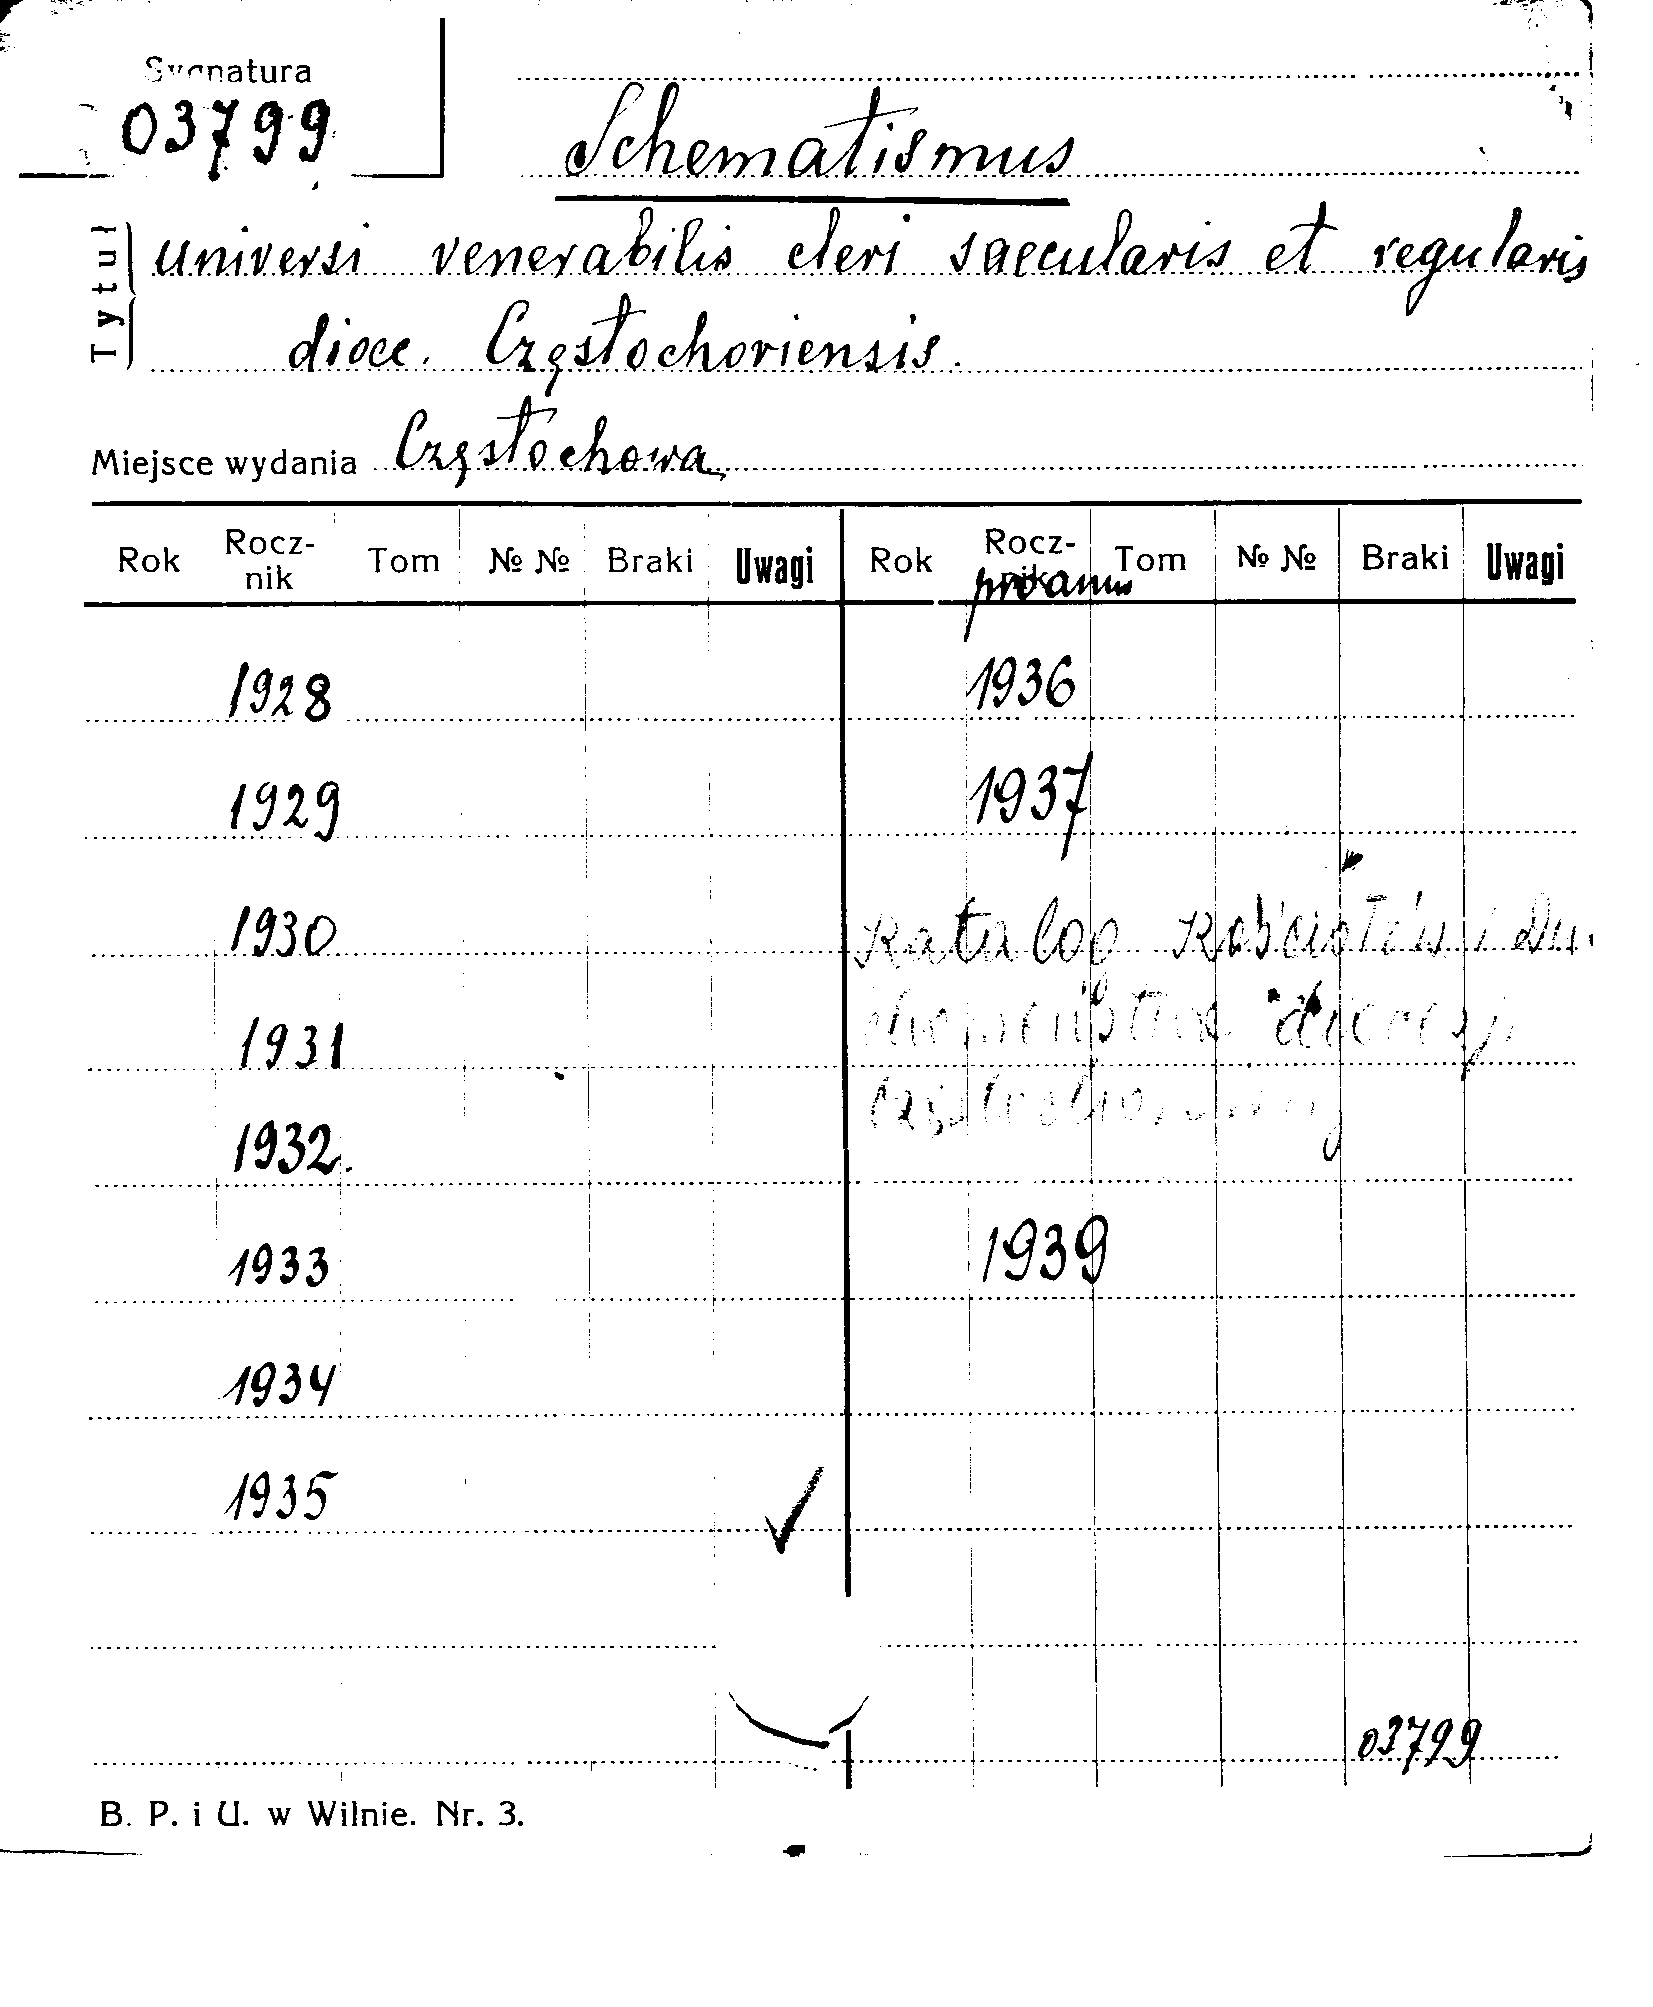 Sygnatura
03799
Schematismus
Tytuł universi venerabilis cleri saecularis et regularis
dioec. Częstochoviensis.
Miejsce wydania Częstochowa
Rok Rocz-nik Tom № № Braki Uwagi Rok Rocz-nik Tom № № Braki Uwagi
pro annis
1928 1936
1929 1937
1930 Katalog kościołów i Du-
1931 chowieństwa diecezji
1932. częstochowskiej
1933 1939
1934
1935
03799
B. P. i U. w Wilnie. Nr. 3.